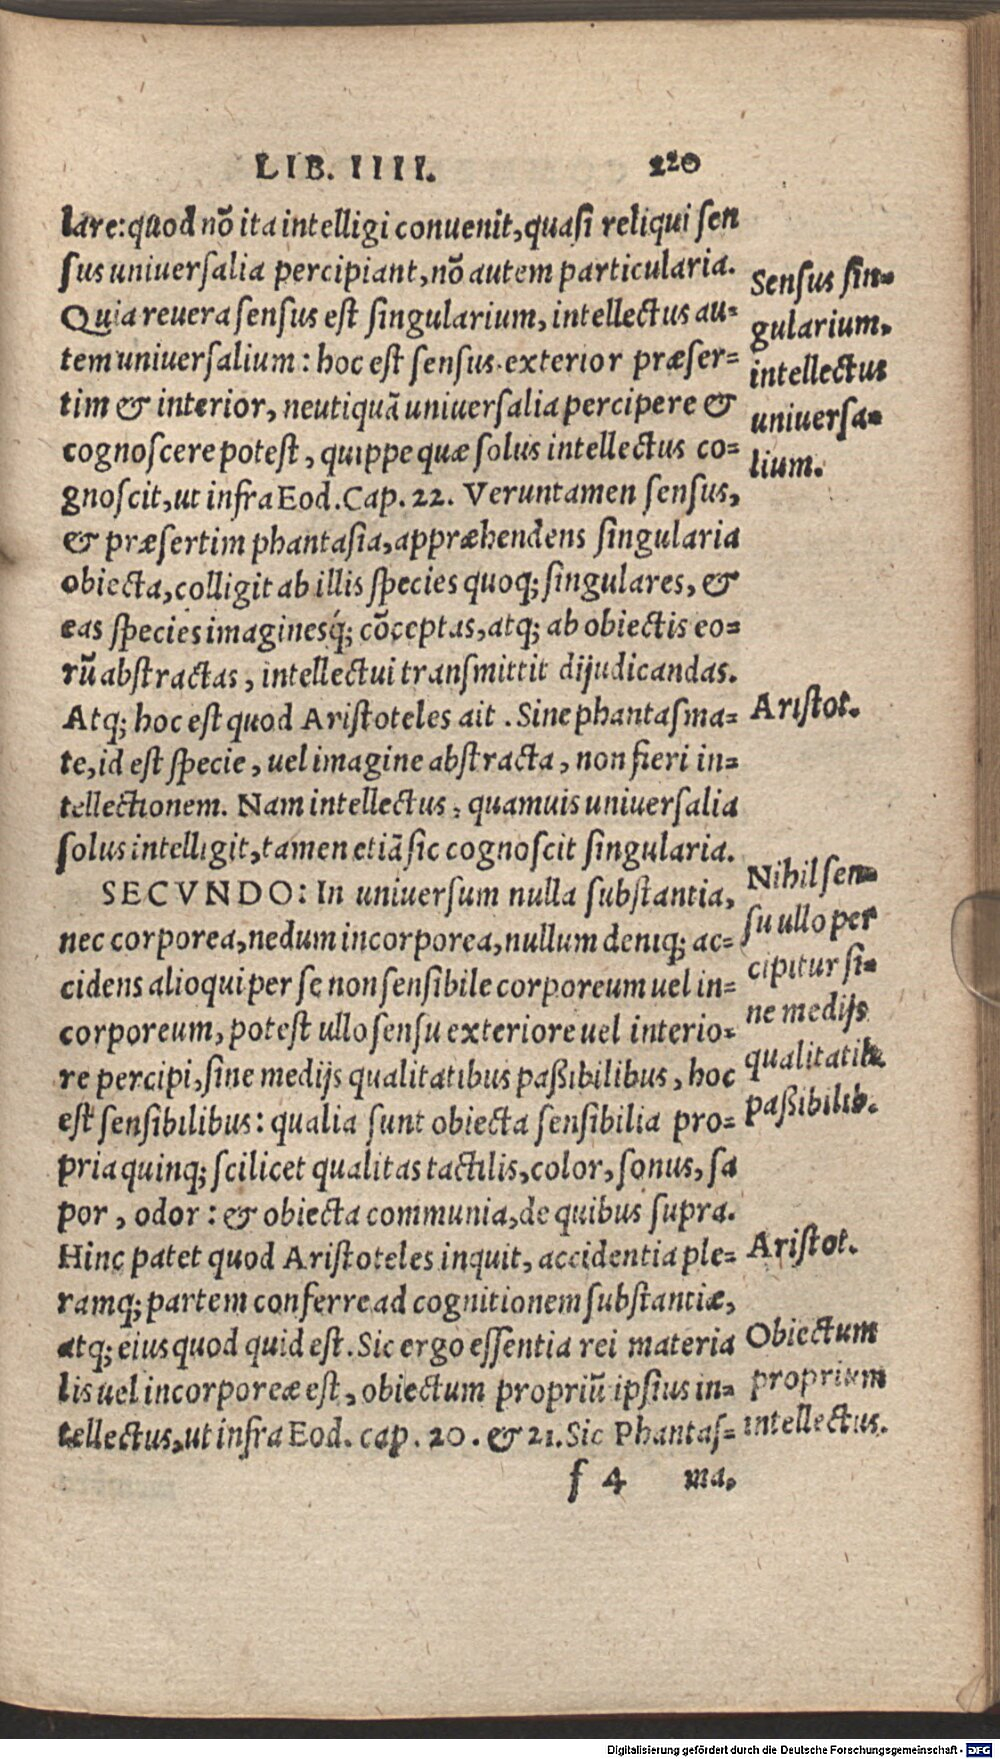 LIB. IIII. 220
lare: quod nō ita intelligi conuenit, quasi reliqui sen
sus uniuersalia percipiant, nō autem particularia.
Quia reuera sensus est singularium, intellectus au=
tem uniuersalium: hoc est sensus exterior præser=
tim & interior, neutiquā uniuersalia percipere &
cognoscere potest, quippe quæ solus intellectus co=
gnoscit, ut infra Eod. Cap. 22. Veruntamen sensus,
& præsertim phantasia, appræhendens singularia
obiecta, colligit ab illis species quoq; singulares, &
eas species imaginesq́; cōceptas, atq; ab obiectis eo=
rū abstractas, intellectui transmittit dijudicandas.
Atq; hoc est quod Aristoteles ait. Sine phantasma=
te, id est specie, uel imagine abstracta, non fieri in=
tellectionem. Nam intellectus, quamuis uniuersalia
solus intelligit, tamen etiā sic cognoscit singularia.
SECVNDO: In uniuersum nulla substantia,
nec corporea, nedum incorporea, nullum deniq; ac=
cidens alioqui per se non sensibile corporeum uel in=
corporeum, potest ullo sensu exteriore uel interio=
re percipi, sine medijs qualitatibus paßibilibus, hoc
est sensibilibus: qualia sunt obiecta sensibilia pro=
pria quinq; scilicet qualitas tactilis, color, sonus, sa
por, odor: & obiecta communia, de quibus supra.
Hinc patet quod Aristoteles inquit, accidentia ple=
ramq; partem conferre ad cognitionem substantiæ,
atq; eius quod quid est. Sic ergo essentia rei materia
lis uel incorporeæ est, obiectum propriū ipsius in=
tellectus, ut infra Eod. cap. 20. & 21. Sic Phantas=
f 4 ma,
Sensus sin=
gularium,
intellectus
uniuersa=
lium.
Aristot.
Nihil sen=
su ullo per
cipitur si=
ne medijs
qualitatib.
paßibilib.
Aristot.
Obiectum
proprium
intellectus.
Digitalisierung gefördert durch die Deutsche Forschungsgemeinschaft - DFG